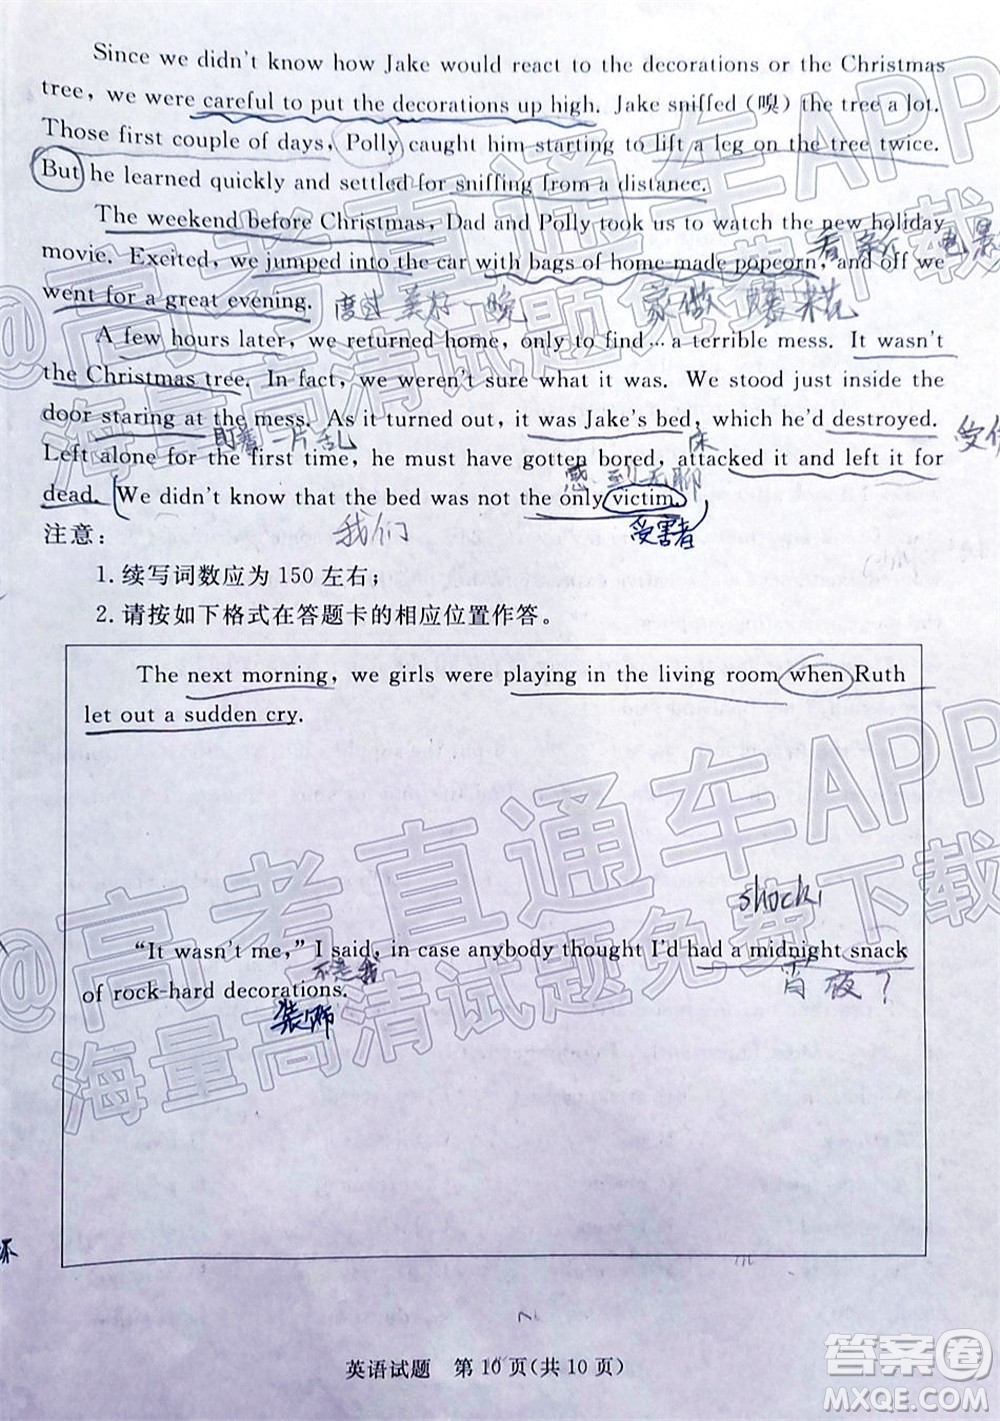 Since we didn't know how Jake would react to the decorations or the Christmas
tree, we were careful to put the decorations up high. Jake sniffed（嗅）the tree a lot.
Those first couple of days, Polly caught him starting to lift a leg on the tree twice.
But he learned quickly and settled for sniffing from a distance.
The weekend before Christmas, Dad and Polly took us to watch the new holiday
看新 电影
movie. Excited, we jumped into the car with bags of home-made popcorn, and off we
went for a great evening. 度过美好一晚 家做 爆米花
A few hours later, we returned home, only to find…a terrible mess. It wasn't
the Christmas tree. In fact, we weren't sure what it was. We stood just inside the
door staring at the mess. As it turned out, it was Jake's bed, which he'd destroyed.
盯着一片乱 床 受
Left alone for the first time, he must have gotten bored, attacked it and left it for
感到无聊
dead. We didn't know that the bed was not the only victim.
注意： 我们 受害者
1. 续写词数应为150左右；
2. 请按如下格式在答题卡的相应位置作答。
The next morning, we girls were playing in the living room when Ruth
let out a sudden cry.
shock
"It wasn't me," I said, in case anybody thought I'd had a midnight snack
不是我 宵夜？
of rock-hard decorations.
装饰
坏
英语试题 第10页(共10页)
@高考直通车APP
海量高清试题免费下载
@高考直通车APP
海量高清试题免费下载
答案圈
MXQE.COM